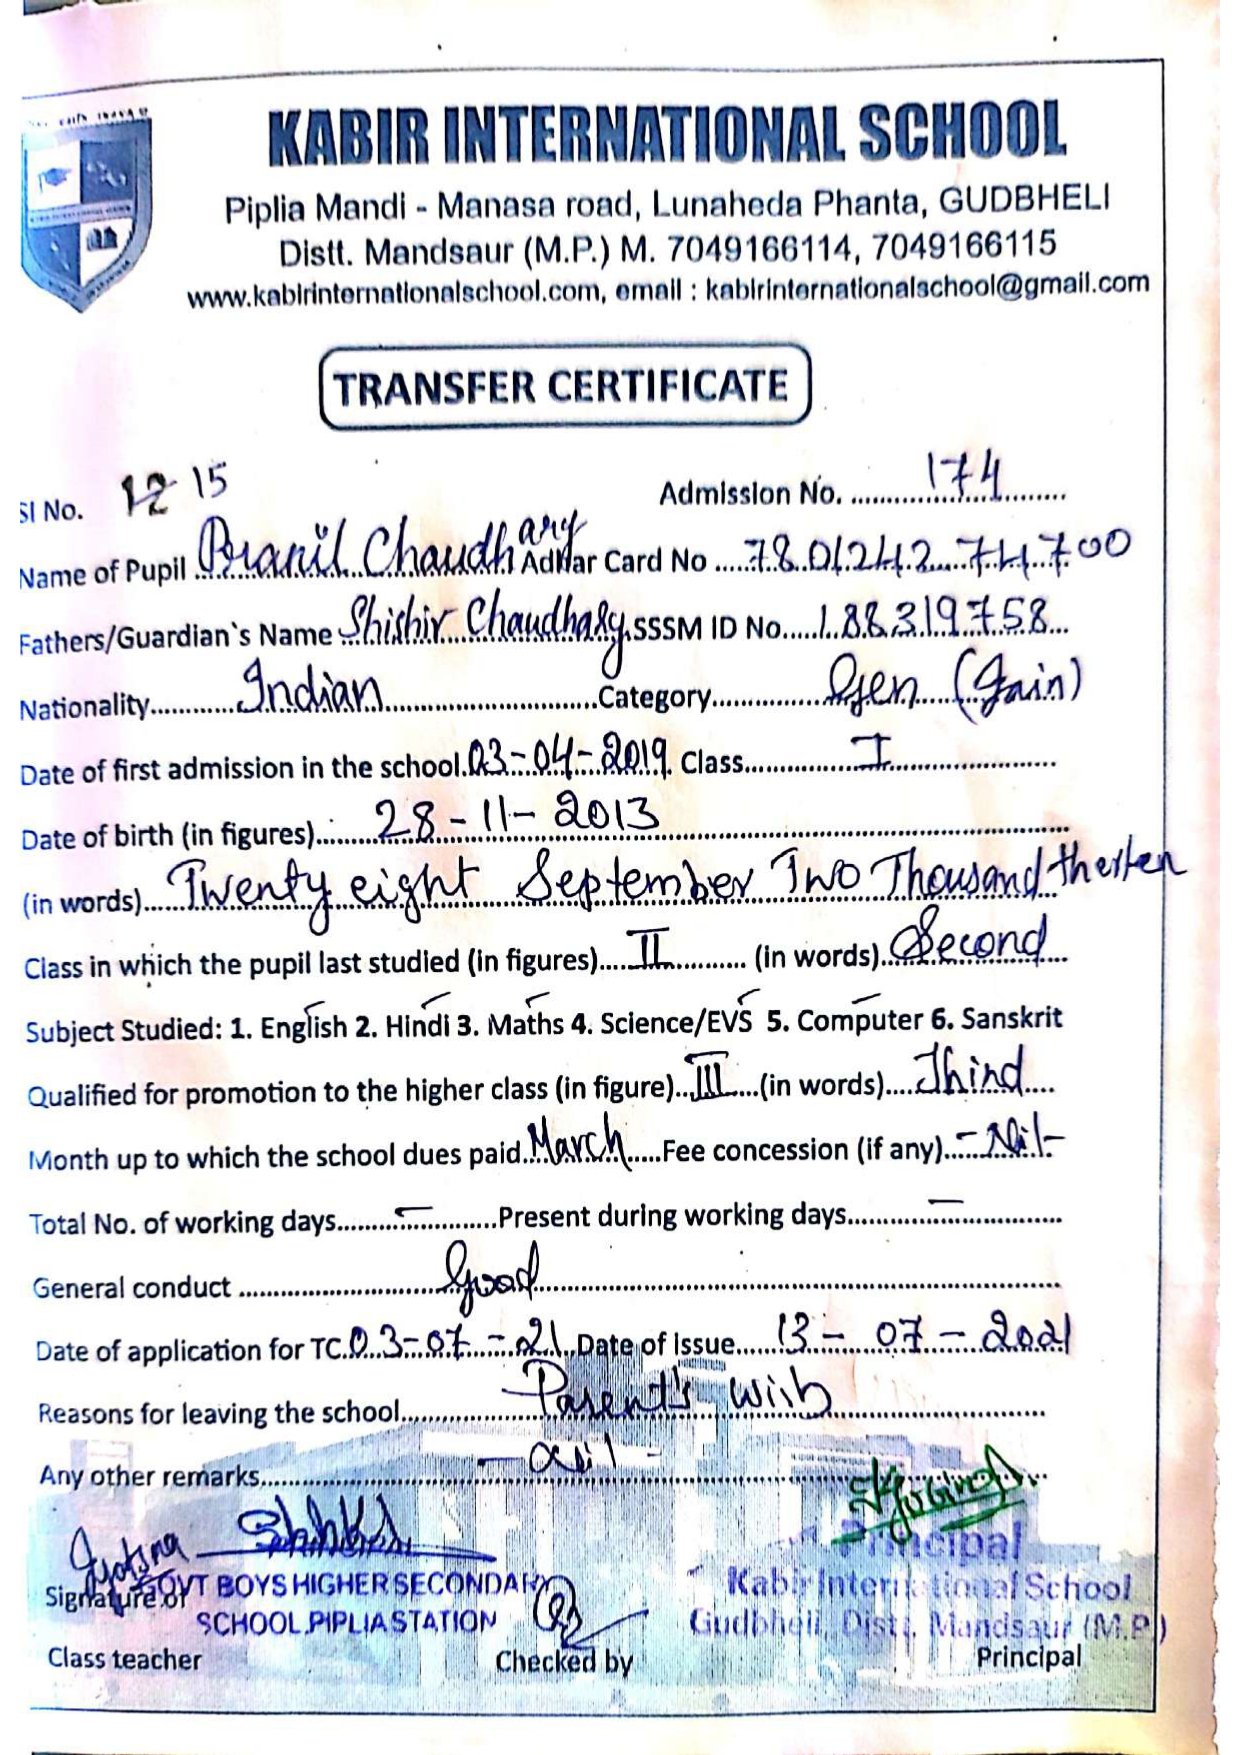 KABIR INTERNATIONAL SCHOOL
Piplia Mandi - Manasa road, Lunaheda Phanta, GUDBHELI
Distt. Mandsaur (M.P.) M. 7049166114, 7049166115
www.kabirinternationalschool.com, email : kabirinternationalschool@gmail.com
TRANSFER CERTIFICATE
Sl No. 12 15 Admission No. 174
Name of Pupil Pranil Chaudhary Adhar Card No 780124274700
Fathers/Guardian`s Name Shishir Chaudhary SSSM ID No. 188319758
Nationality Indian Category Gen (Jain)
Date of first admission in the school 03-04-2019 Class I
Date of birth (in figures) 28-11-2013
(in words) Twenty eight September Two Thousand therten
Class in which the pupil last studied (in figures) II (in words) Second
Subject Studied: 1. English 2. Hindi 3. Maths 4. Science/EVS 5. Computer 6. Sanskrit
Qualified for promotion to the higher class (in figure) III (in words) Third
Month up to which the school dues paid March Fee concession (if any) - Nil -
Total No. of working days - Present during working days -
General conduct Good
Date of application for TC 03-07-21 Date of Issue 13-07-2021
Reasons for leaving the school Parent's wish
Any other remarks - Nil -
Jyotsna
Principal
Signature of GOVT BOYS HIGHER SECONDARY Kabir International School
SCHOOL, PIPLIA STATION Gudbheli, Distt. Mandsaur (M.P.)
Class teacher Checked by Principal